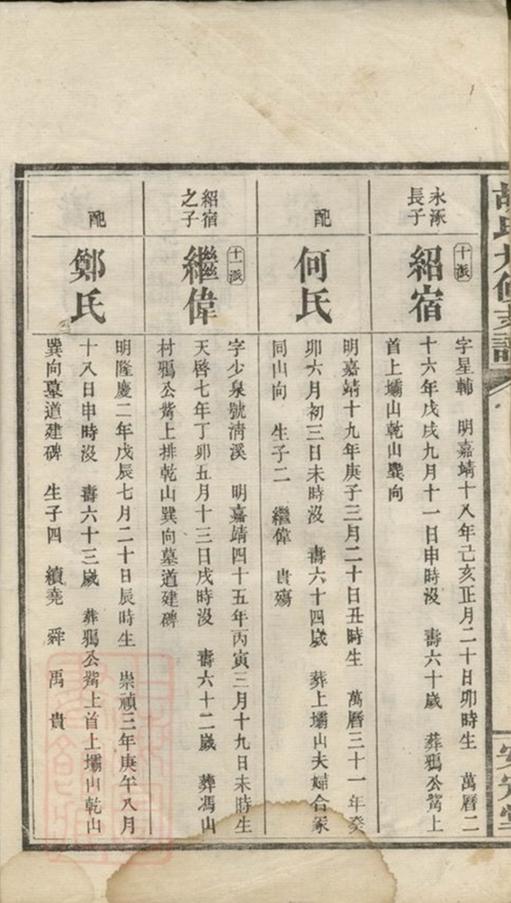 胡氏九修支譜
永涿長子
十派
紹宿
字星輔 明嘉靖十八年己亥正月二十日卯時生 萬曆二
十六年戊戌九月十一日申時沒 壽六十歲 葬鴉公嘴上
首上壩山乾山巽向
配
何氏
明嘉靖十九年庚子三月二十日丑時生 萬曆三十一年癸
卯六月初三日未時沒 壽六十四歲 葬上壩山夫婦合冢
同山向 生子二 繼偉 貴殤
紹宿之子
十一派
繼偉
字少泉號清溪 明嘉靖四十五年丙寅三月十九日未時生
天啓七年丁卯五月十三日戌時沒 壽六十二歲 葬馮山
村鴉公嘴上排乾山巽向墓道建碑
配
鄭氏
明隆慶二年戊辰七月二十日辰時生 崇禎三年庚午八月
十八日申時沒 壽六十三歲 葬鴉公嘴上首上壩山乾山
巽向墓道建碑 生子四 續堯 舜 禹 貴